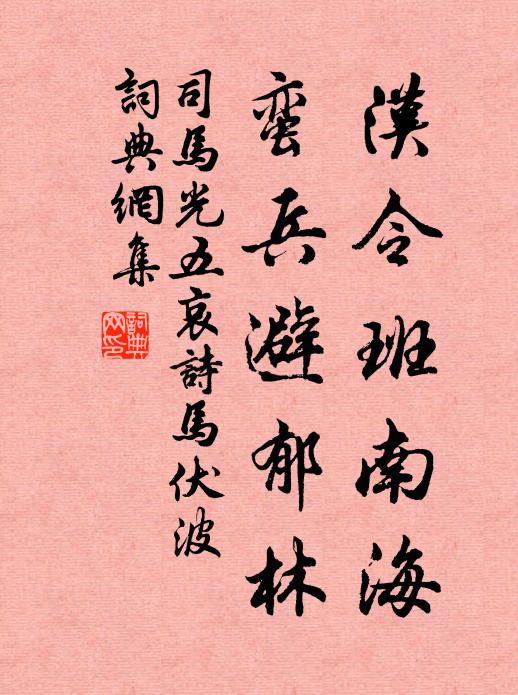 漢令班南海
蛮兵避郁林
司馬光五哀詩馬伏波
詞典網集
詞典网印